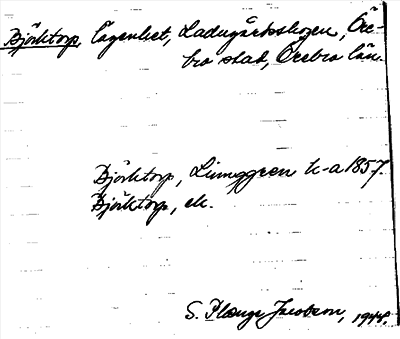 Björktorp, lägenhet, Ladugårdsskogen, Öre-
bro stad, Örebro län.
Björktorp, Ljunggren k-a 1857.
Björktorp, ek.
S. Plænge Jacobson, 1948.